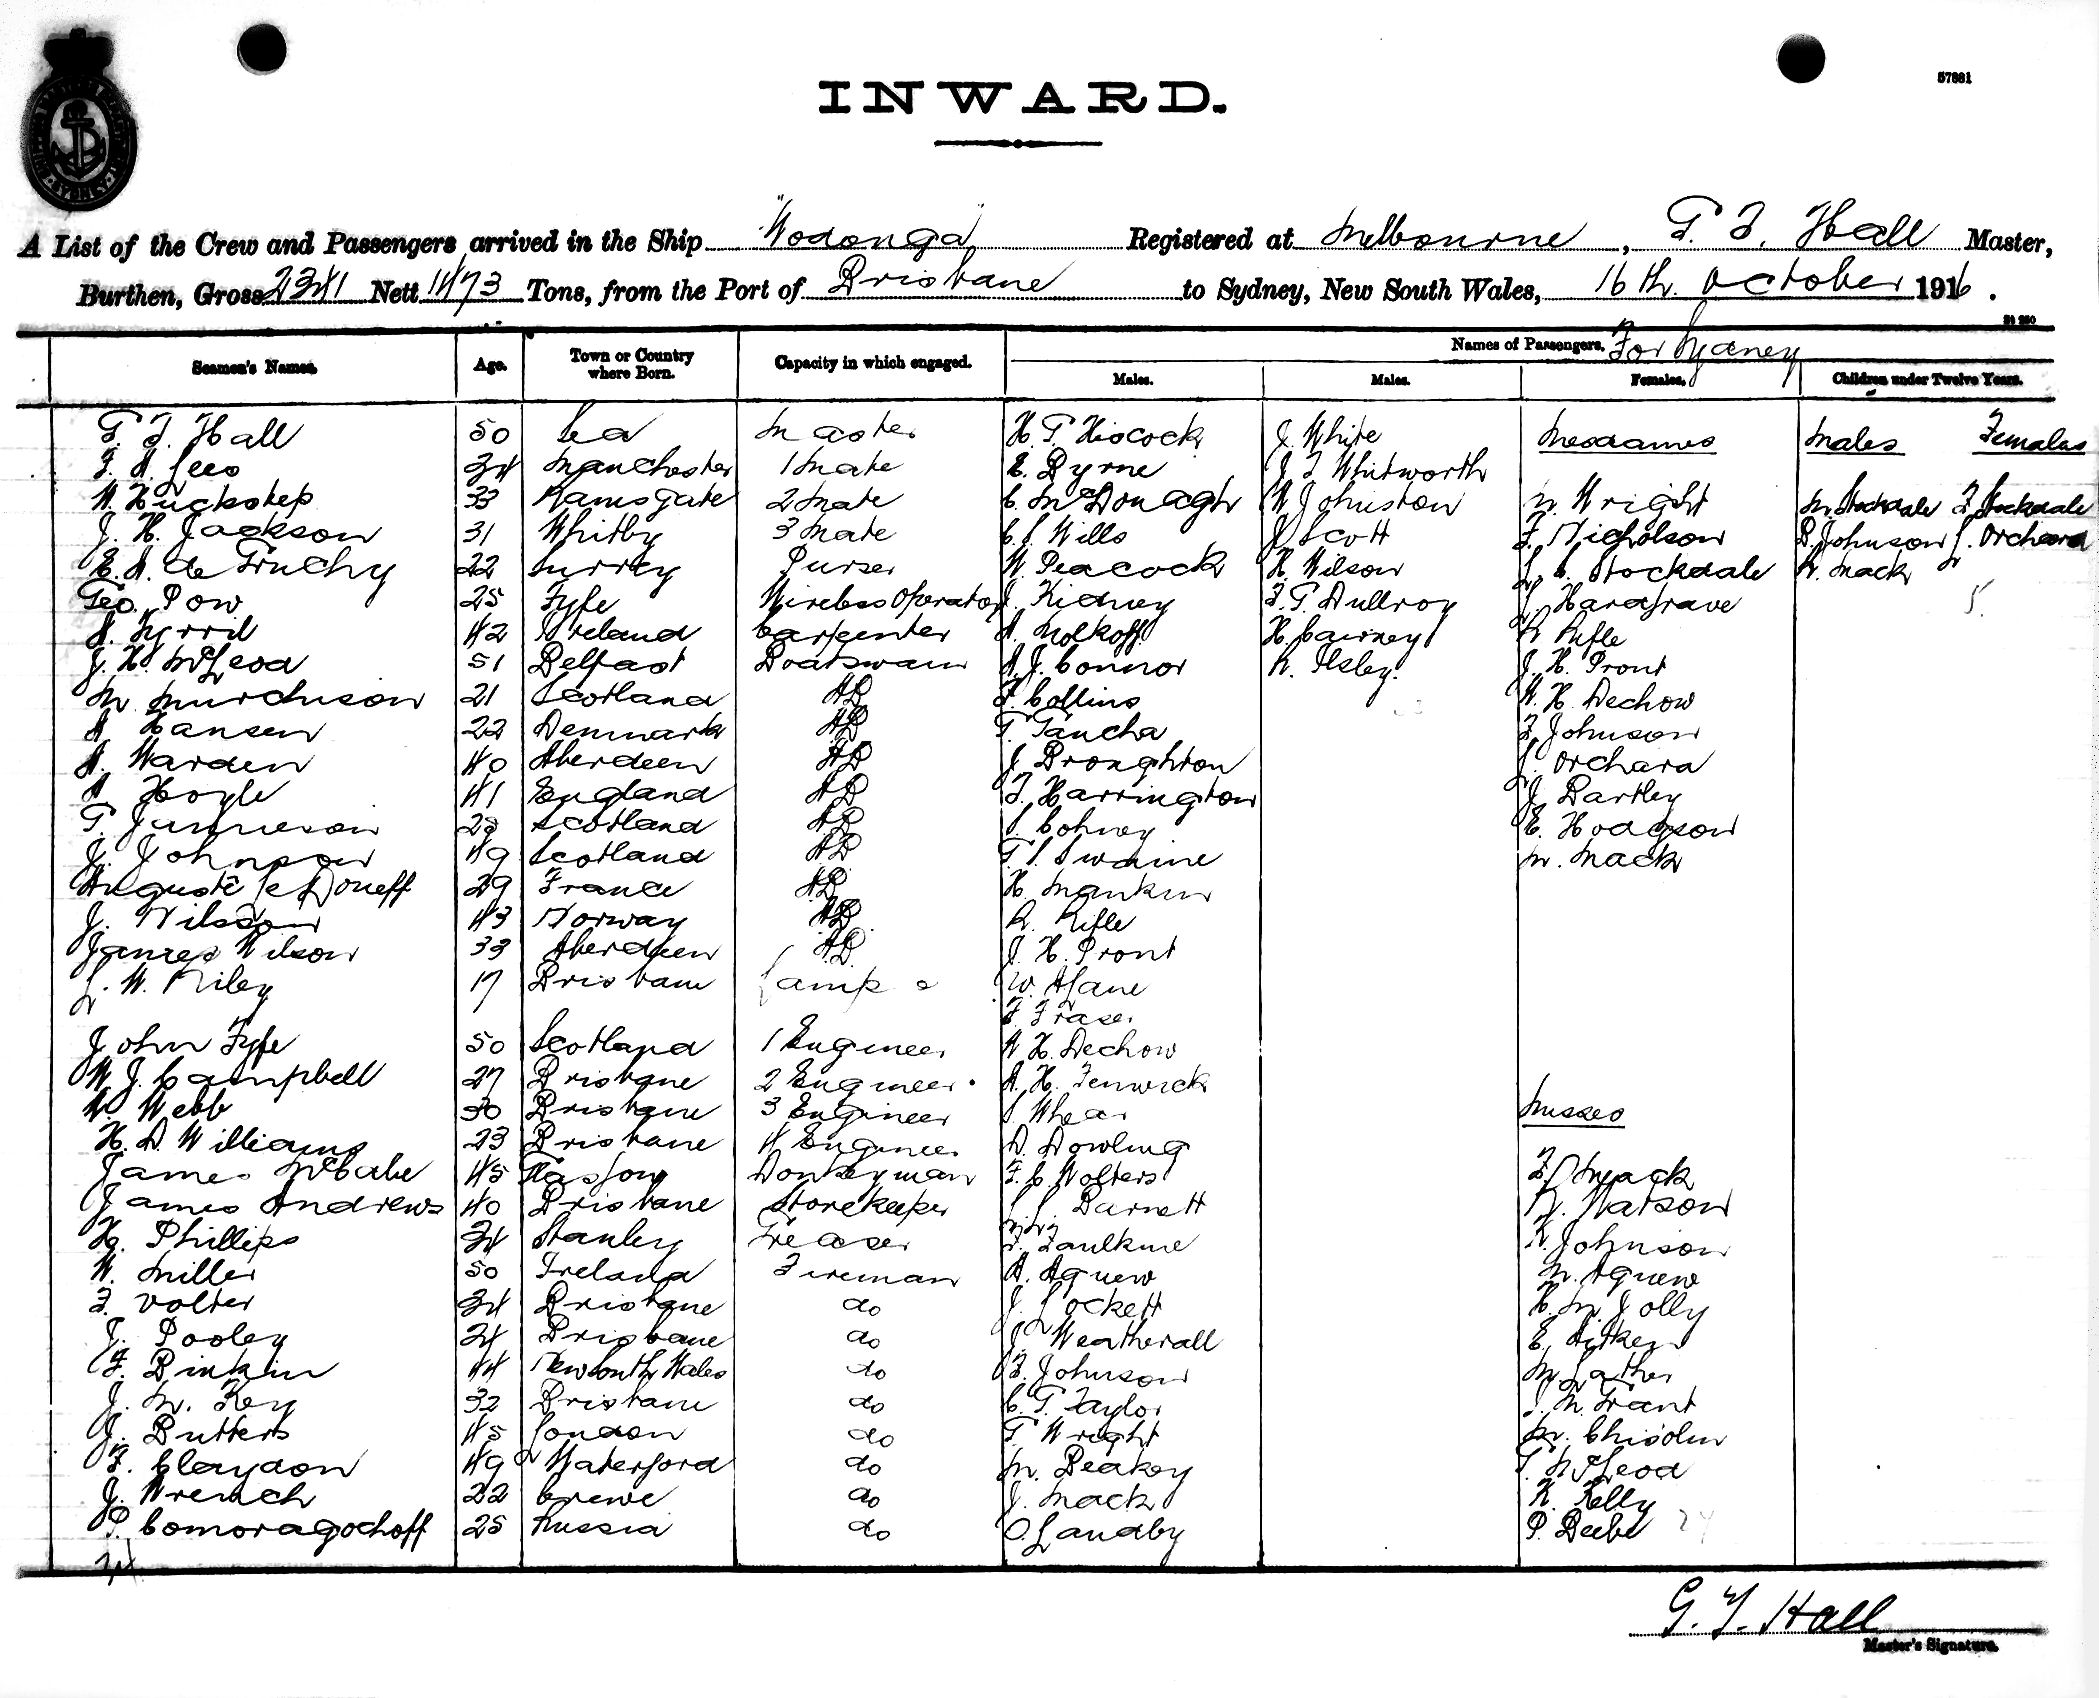 57881
INWARD.
A List of the Crew and Passengers arrived in the Ship "Wodonga" Registered at Melbourne, G. F. Hall Master,
Burthen, Gross 2341 Nett 1473 Tons, from the Port of Brisbane to Sydney, New South Wales, 16th. October 1916.
Seamen's Names. Age. Town or Country where Born. Capacity in which engaged. Names of Passengers. For Sydney
Males. Males. Females. Children under Twelve Years.
G. F. Hall 50 Sea Master H. G. Hiscock J. White Mesdames Males Females
F. A. Lees 34 Manchester 1 Mate E. Byrne J. F. Whitworth
W. Huckstep 33 Ramsgate 2 Mate C. McDonagh W Johnston W. Wright M. Stockdale F. Stockdale
J. H. Jackson 31 Whitby 3 Mate C. S. Wills J Scott F. Nicholson B. Johnson L. Orchard
E. A. de Gruchy 22 Surrey Purser W. Peacock H. Wilson L. C. Stockdale R. Mack
Geo. Pow 25 Fyfe Wireless Operator J. Kidney F. G. Dullroy J. Hardgrave 5.
A. Tyrril 42 Ireland Carpenter A. Molkoff H. Cairney R Rifle
J. H. McLeod 51 Belfast Boatswain A. J. Connor R. Ilsley. J. H. Pront
M Murchison 21 Scotland AB F. Collins W. H. Dechow
A Hansen 22 Denmark AB G. Gancha F. Johnson
A. Warden 40 Aberdeen AB J Broughton L. Orchard
A Hoyle 41 England AB F. Harrington J. Bartley
G. Jamieson 28 Scotland AB S. Cohney E. Hodgson
J. Johnson 49 Scotland AB G. S. Swaine M. Mack
Auguste Le Doneff 29 France AB H. Mankin
J. Nilsson 43 Norway AB R. Rifle
James Wilson 33 Aberdeen AB J. H. Pront
L. W. Riley 17 Brisbane Lamps W. A Lane
F. Fraser
John Fyfe 50 Scotland 1 Engineer A H. Dechow
W J. Campbell 27 Brisbane 2 Engineer. A. H. Fenwick
W. Webb 30 Brisbane 3 Engineer S Whear Misses
H. D. Williams 23 Brisbane 4 Engineer D. Dowling
James McCabe 45 Glasgow Donkeyman F. C Wolters F. Mack
James Andrews 40 Brisbane Storekeeper L. Barnett N. Watson
H. Phillips 34 Stanley Greaser F. Faulkine R. Johnson
W. Miller 50 Ireland Fireman A. Agnew M. Agnew
F. Volter 34 Brisbane do J. Lockett H. M Jolly
J. Pooley 34 Brisbane do J. Weatherall E. Aitken
F. Binkin 44 New South Wales do F. Johnson M. Lather
J. M. Key 32 Brisbane do C. G. Taylor J. M. Grant
J. Butters 45 London do G Wright M. Chisolm
F. Claydon 49 Waterford do M. Beakey G. McLeod
J. Wrench 22 Crewe do J. Mack K. Kelly
P. Comoragochoff 25 Russia do O. Landby P. Beebe 24
34
G. F. Hall
Master's Signature.